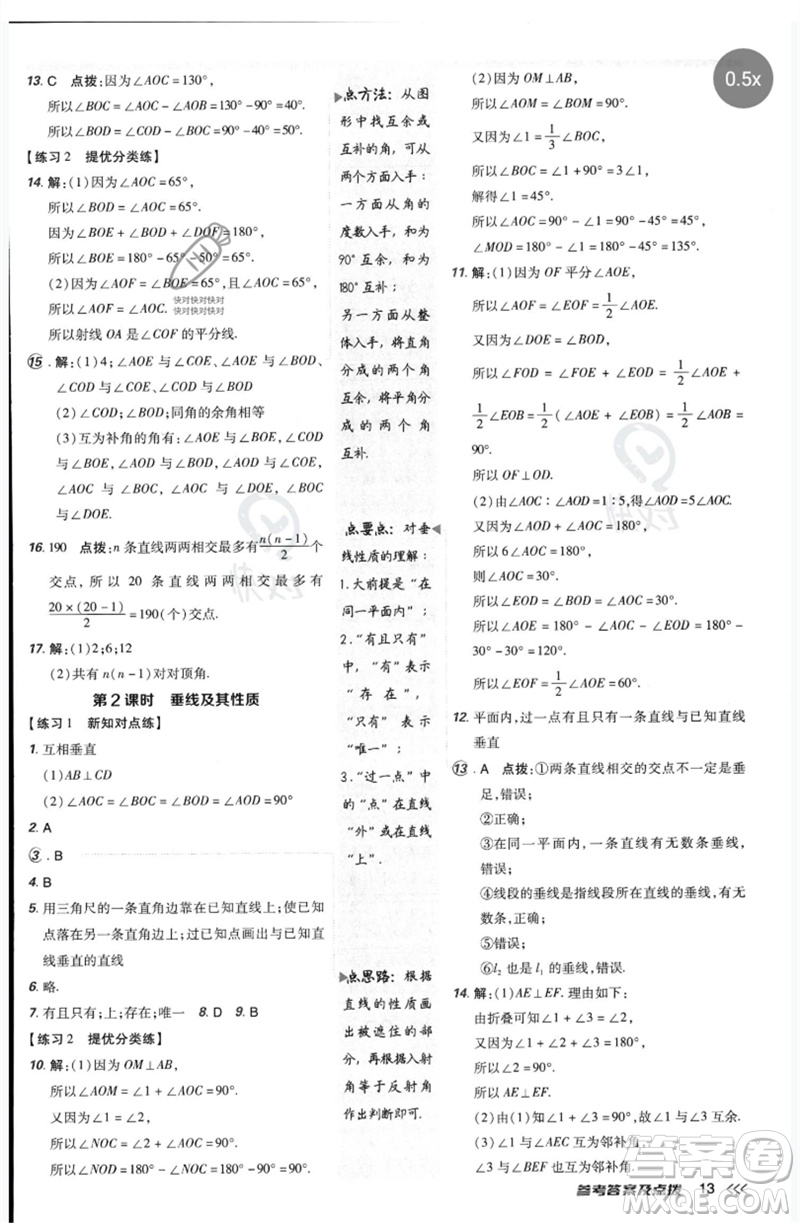 13. C 点拨：因为∠AOC=130°，
所以∠BOC=∠AOC-∠AOB=130°-90°=40°.
所以∠BOD=∠COD-∠BOC=90°-40°=50°.
【练习2 提优分类练】
14. 解：(1)因为∠AOC=65°，
所以∠BOD=∠AOC=65°.
因为∠BOE+∠BOD+∠DOF=180°，
所以∠BOE=180°-65°-50°=65°.
(2)因为∠AOF=∠BOE=65°，且∠AOC=65°，
所以∠AOF=∠AOC.
所以射线OA是∠COF的平分线.
快对快对快对
快对快对快对
15. 解：(1)4；∠AOE与∠COE、∠AOE与∠BOD、
∠COD与∠COE、∠COD与∠BOD
(2)∠COE；∠BOD；同角的余角相等
(3)互为补角的角有：∠AOE与∠BOE、∠COD
与∠BOE、∠AOD与∠BOD、∠AOD与
∠COE、∠AOC与∠BOC、∠AOC与∠DOE、
∠BOC与∠DOE.
16. 190 点拨：n条直线两两相交最多有n(n-1)/2个
交点，所以20条直线两两相交最多有
20×(20-1)/2=190(个)交点.
17. 解：(1)2；6；12
(2)共有n(n-1)对对顶角.
第2课时 垂线及其性质
【练习1 新知对点练】
1. 互相垂直
(1)AB⊥CD
(2)∠AOC=∠BOC=∠BOD=∠AOD=90°
2. A
3. B
4. B
5. 用三角尺的一条直角边靠在已知直线上；使已知
点落在另一条直角边上；过已知点画出与已知直
线垂直的直线
6. 略.
7. 有且只有；上；存在；唯一 8. D 9. B
【练习2 提优分类练】
10. 解：(1)因为OM⊥AB，
所以∠AOM=∠1+∠AOC=90°.
又因为∠1=∠2，
所以∠NOC=∠2+∠AOC=90°.
所以∠NOD=180°-∠NOC=180°-90°=90°.
点方法：从图
形中找互余或
互补的角，可从
两个方面入手：
一方面从角的
度数入手，和为
90°互余，和为
180°互补；
另一方面从整
体入手，将直角
分成的两个角
互余，将平角分
成的两个角
互补.
点要点：对垂
线性质的理解：
1.大前提是“在
同一平面内”；
2.“有且只有”
中，“有”表示
“存在”，
“只有”表示
“唯一”；
3.“过一点”中
的“点”在直线
“外”或在直线
“上”.
点思路：根据
直线的性质画
出被遮住的部
分，再根据入射
角等于反射角
作出判断即可.
(2)因为OM⊥AB，
所以∠AOM=∠BOM=90°.
又因为∠1=1/3∠BOC，
所以∠BOC=∠1+90°=3∠1，
解得∠1=45°.
所以∠AOC=90°-∠1=90°-45°=45°，
∠MOD=180°-∠1=180°-45°=135°.
11. 解：(1)因为OF平分∠AOE，
所以∠AOF=∠EOF=1/2∠AOE.
又因为∠DOE=∠BOD=1/2∠EOB，
所以∠FOD=∠FOE+∠DOE=1/2∠AOE+
1/2∠EOB=1/2(∠AOE+∠EOB)=1/2∠AOB=
90°.
所以OF⊥OD.
(2)由∠AOC∶∠AOD=1∶5，得∠AOD=5∠AOC.
又因为∠AOC+∠AOD=180°，
所以6∠AOC=180°，
则∠AOC=30°.
所以∠EOD=∠BOD=∠AOC=30°.
所以∠AOE=180°-∠BOD-∠EOD=180°-
30°-30°=120°.
所以∠EOF=1/2∠AOE=60°.
12. 平面内，过一点有且只有一条直线与已知直线
垂直
13. A 点拨：①两条直线相交的交点不一定是垂
足，错误；
②正确；
③在同一平面内，一条直线有无数条垂线，
错误；
④线段的垂线是指线段所在直线的垂线，有无
数条，正确；
⑤错误；
⑥l₂也是l₁的垂线，错误.
14. 解：(1)AE⊥EF. 理由如下：
由折叠可知∠1=∠2，∠3=∠4.
又因为∠1+∠2+∠3+∠4=180°，
所以∠2+∠3=90°.
所以AE⊥EF.
(2)由(1)知∠1+∠3=90°，故∠1与∠3互余.
(3)∠1与∠AEC互为邻补角，
∠3与∠BEF也互为邻补角.
0.5x
快对
快对
答案圈
MXQE.COM
参考答案及点拨 13